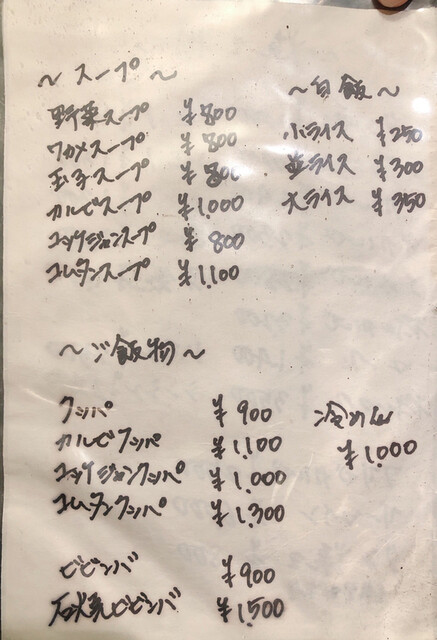 ～スープ～
野菜スープ ¥800
ワカメスープ ¥800
玉子スープ ¥800
カルビスープ ¥1,000
ユッケジャンスープ ¥800
コムタンスープ ¥1,100
～白飯～
小ライス ¥250
並ライス ¥300
大ライス ¥350
～ご飯物～
クッパ ¥900
カルビクッパ ¥1,100
ユッケジャンクッパ ¥1,000
コムタンクッパ ¥1,300
ビビンバ ¥900
石焼ビビンバ ¥1,500
冷めん
¥1,000